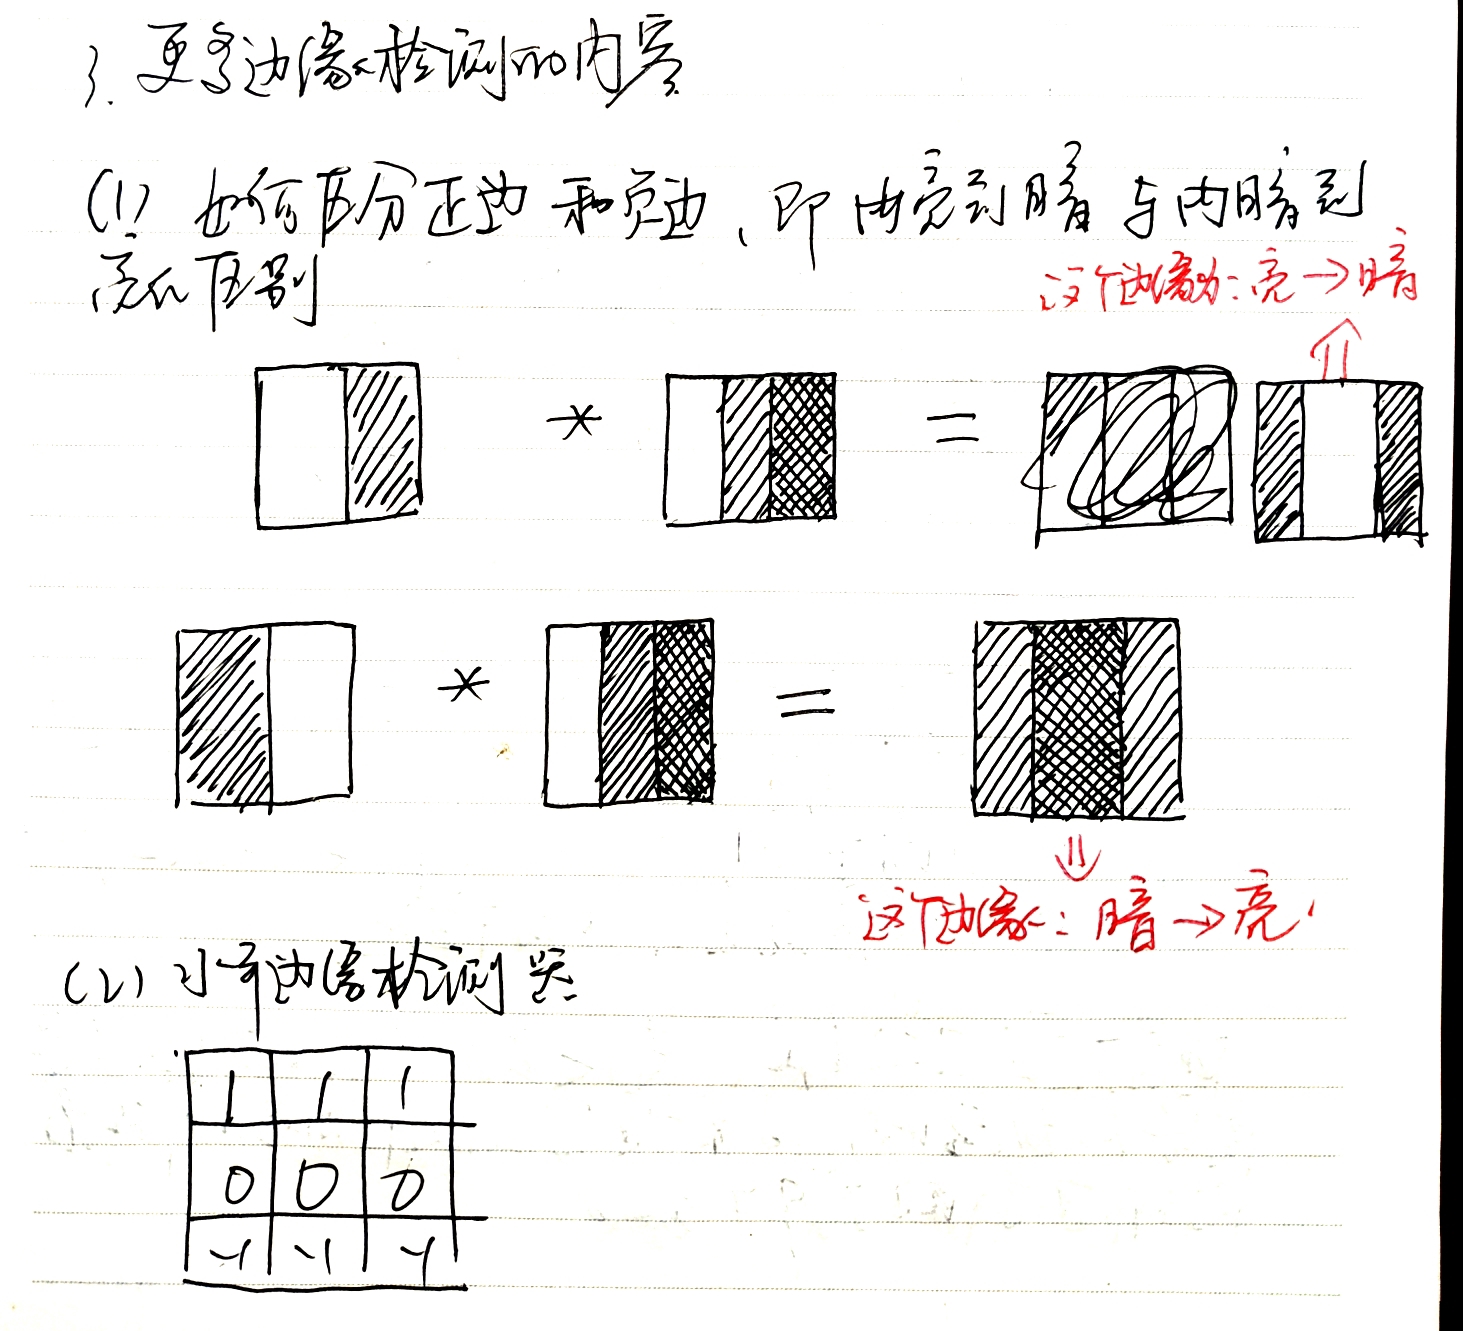 3. 更多边缘检测的内容
(1) 如何区分正边和负边、即由亮到暗与由暗到
亮的区别
这个边缘为:亮→暗
* =
* =
⇓
这个边缘:暗→亮
(2) 水平边缘检测器
1 1 1
0 0 0
-1 -1 -1